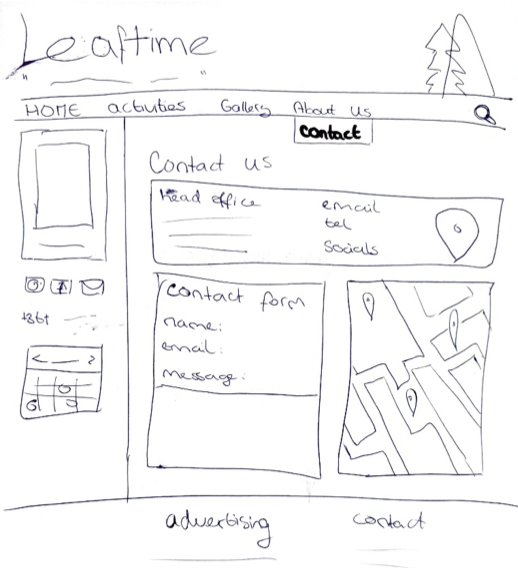 Leaftime
HOME activities Gallery About Us
Contact
Contact us
Head office
email
tel
Socials
Contact form
name:
email:
message:
advertising contact